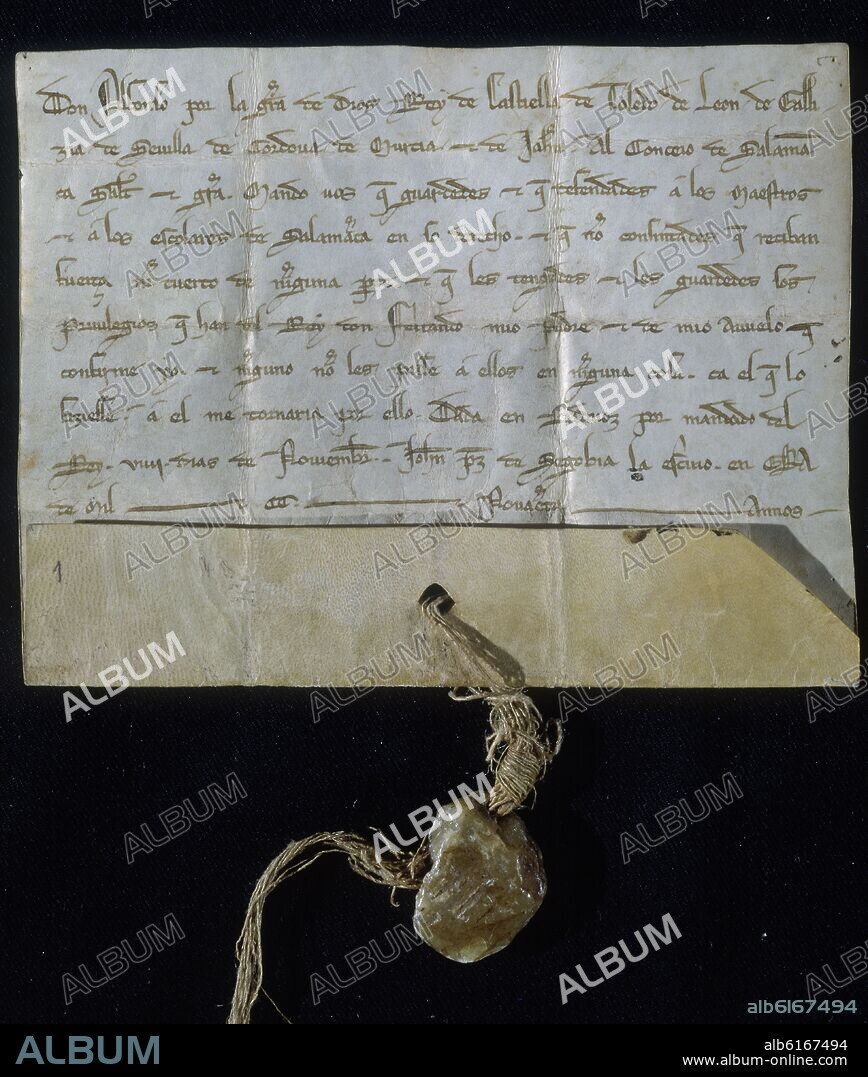 Don Alfonso por la gra de Dios Rey de Castiella de Toledo de Leon de Galli
zia de Sevilla de Cordova de Murcia et de Jahn Al Conceio de Salaman
ca Salt et gra. Mando vos q guardedes et q defendades a los Maestros
et a los escolares de Salamaca en so derecho. et q no consintades q reciban
fuerça tuerto de niguna et q les tengades et les guardedes los
privilegios q han del Rey don Ferrando mio padre et de mio avuelo q
confirme yo. et niguno no les passe a ellos en niguna cosa. ca el q lo
fiziesse. a el me tornaria por ello. Dada en por mandado del
Rey. viiii. dias de Novembr. Johan pz de Segobia la escrivio. en ERA
de Mil CC. Novaeta Annos
1
ALBUM
alb6167494
ALBUM
alb6167494
www.album-online.com